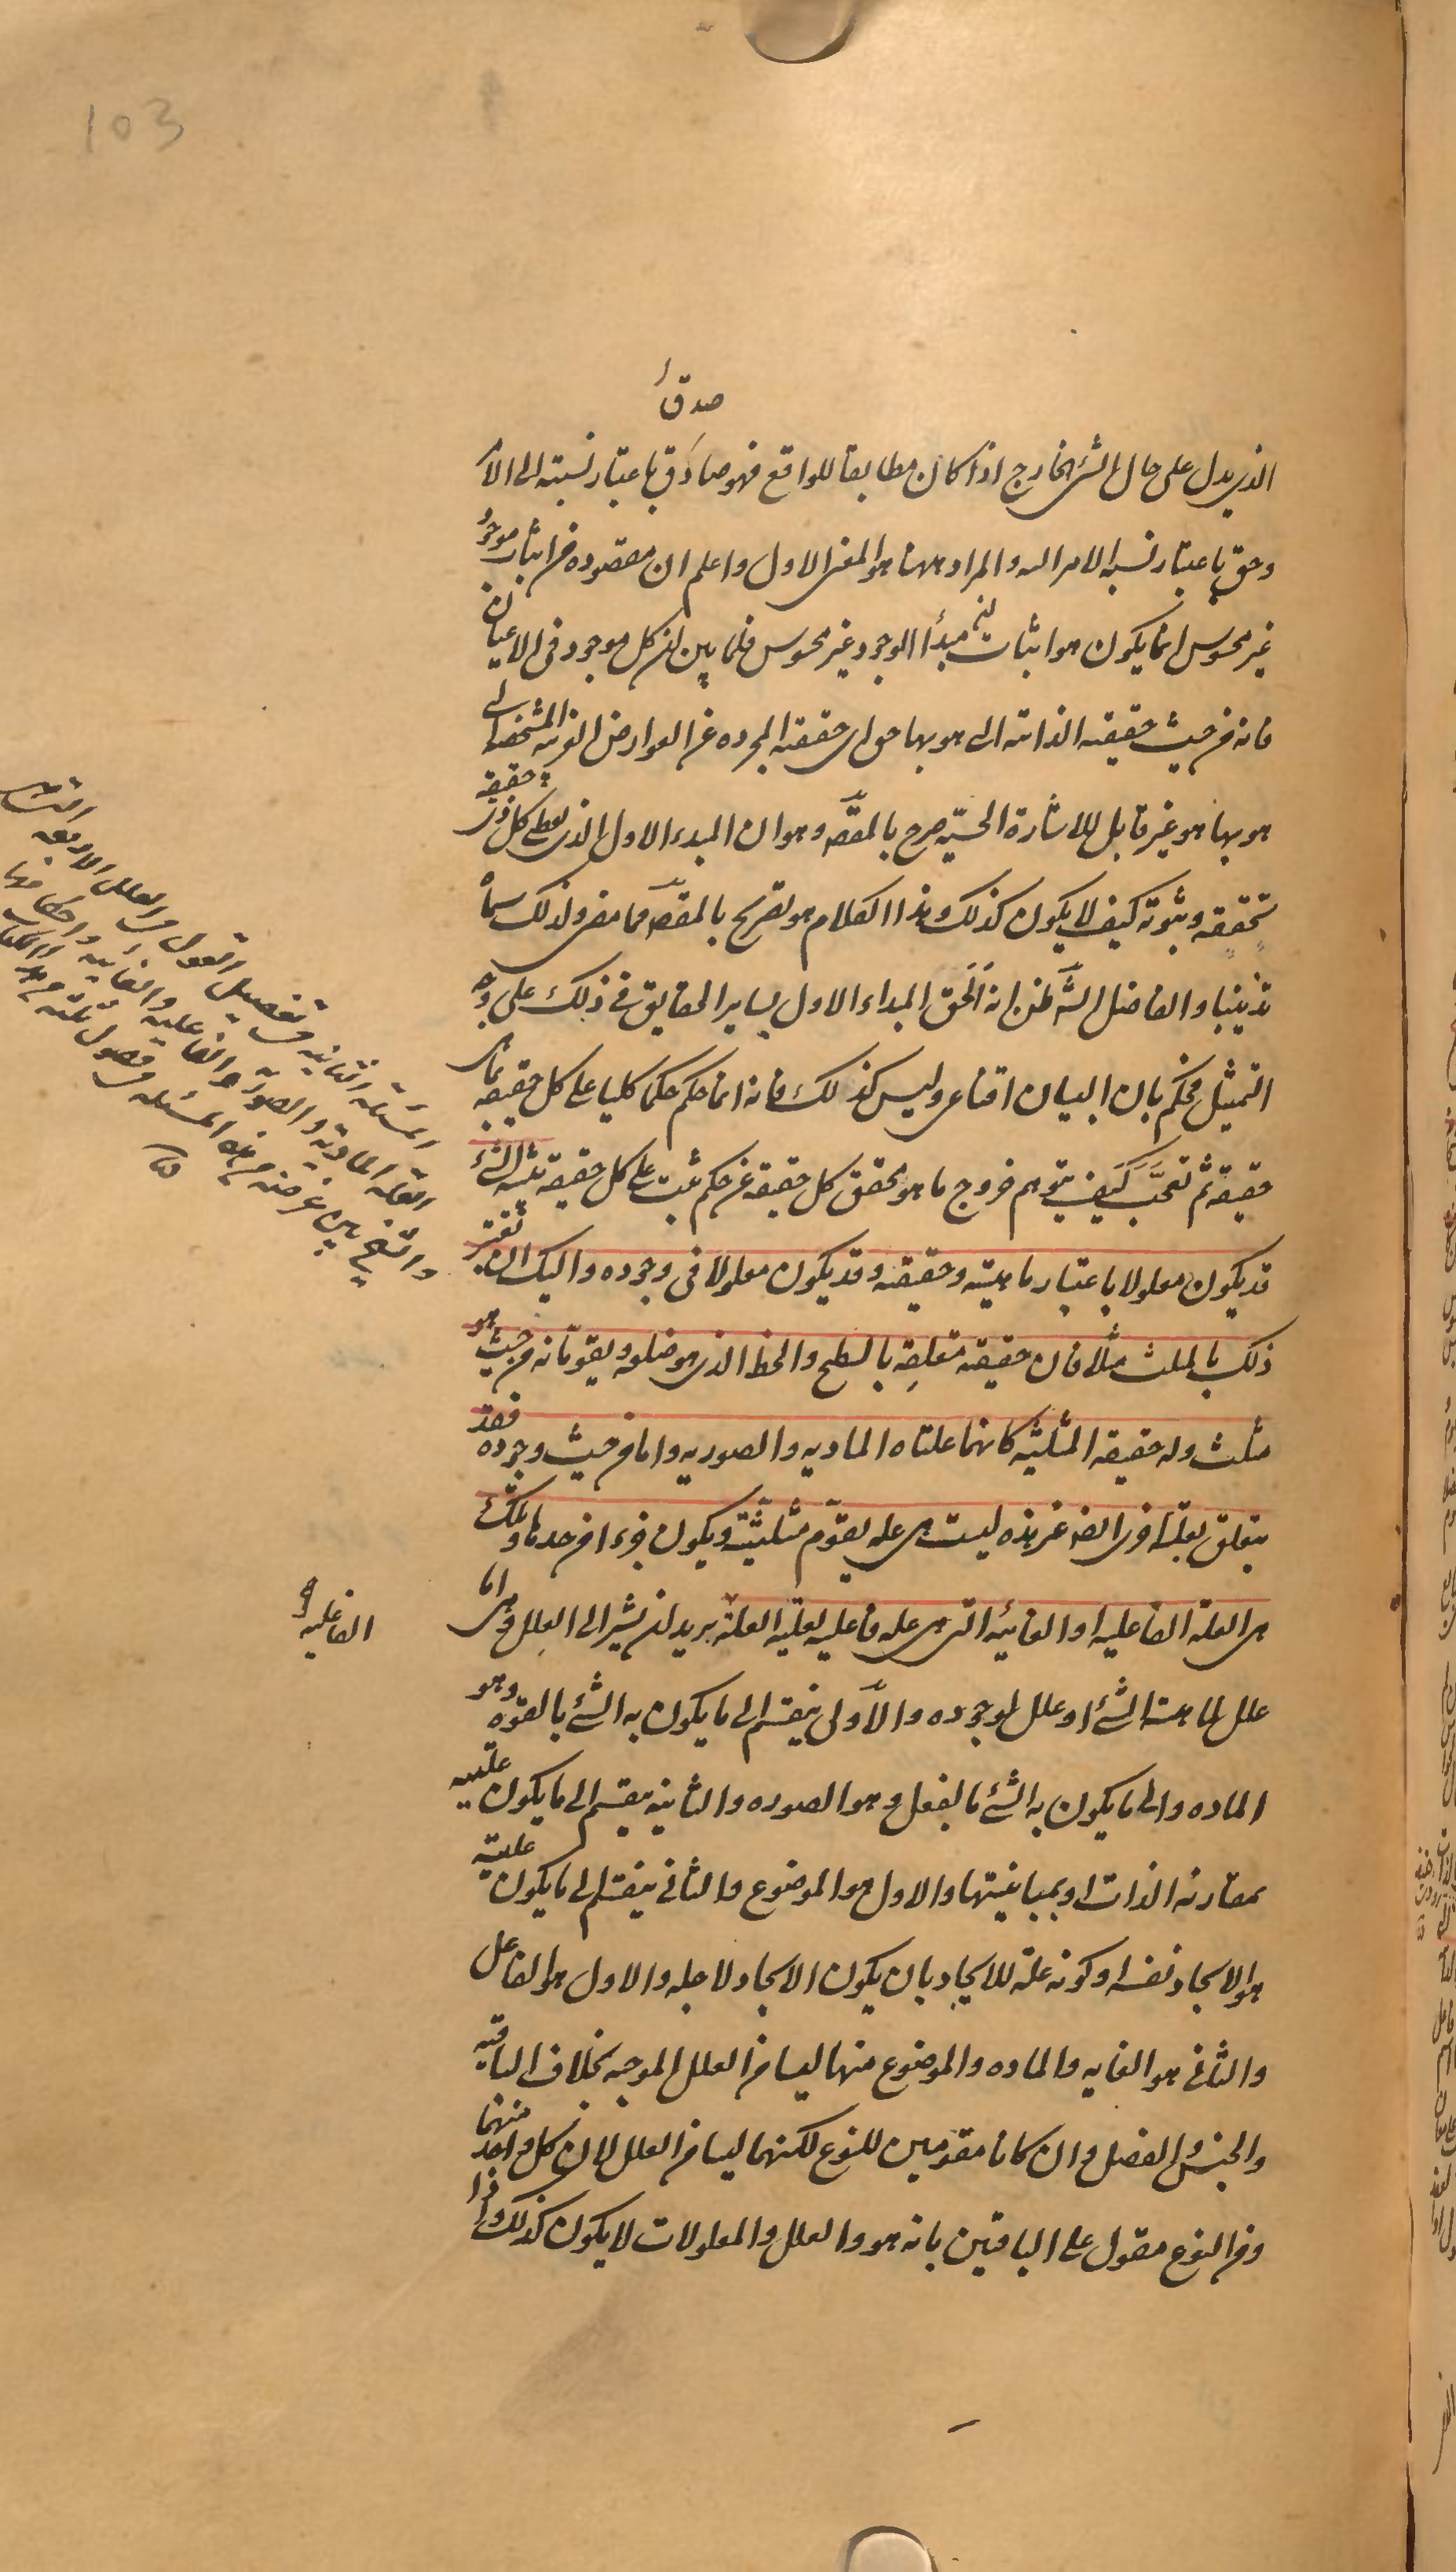 103
صدق
الذي يدل على حال الشئ الخارج اذا كان مطابقا للواقع فهو صادق باعتبار نسبته الى الامر
وحق باعتبار نسبة الامر اليه والمراد ههنا هو المعنى الاول واعلم ان مقصوده من اثبات موجود
غير محسوس انما يكون هو اثبات ان مبدأ الوجود غير محسوس فلما بين ان كل موجود فى الاعيان
فانه من حيث حقيقته الذاتية التى هو بها هو اى حقيقته المجرده عن العوارض الغريبه المشخصه التى
هو بها هو غير قابل للاشارة الحسيّه صرح بالمقصَّ وهو ان المبدء الاول الذى يعطى كل ذى حقيقة
تحققه وثبوته كيف لا يكون كذلك وهذا الكلام هو تصريح بالمقصَّ مما مضى ولذلك سماه
تذنيبا والفاضل الشَّ ظن انه الحق المبداء الاول بساير الحقايق فى ذلك على وجه
التمثيل فحكم بان البيان اقناعى وليس كذلك فانه انما حكم حكما كليا على كل حقيقه بما هى
حقيقة ثم تعجّب كيف يتوهم خروج ما هو محقق كل حقيقة عن حكم ثبت على كل حقيقة تنبيه الشئ
قد يكون معلولا باعتبار ماهيته وحقيقته وقد يكون معلولا فى وجوده واليك ان تعتبر
ذلك بالمثلث مثلا فان حقيقته متعلقة بالسطح والخط الذى هو ضلعه ويقومانه من حيث هو
مثلث وله حقيقه المثلثيّه كانهما علتاه الماديه والصوريه واما من حيث وجوده فقد
يتعلق بعلّة اخرى ايضا غير هذه ليست هى علة يقوّم مثلثيّته ويكون جزء ا من حدها وتلك
هى العلة الفاعلية او الغائيه التى هى علة فاعليه لعليه العلة الفاعلية يريد ان يشير الى العلل وهى اما
علل لماهية الشئ او علل لوجوده والاولى ينقسم الى ما يكون به الشئ بالقوه وهو
الماده والى ما يكون به الشئ بالفعل وهو الصوره والثانيه ينقسم الى ما يكون عليته
بمقارنه الذات او بمباينتها والاول هو الموضوع والثانى ينقسم الى ما يكون عليته
هو الايجاد نفسه او كونه علة للايجاد بان يكون الايجاد لاجله والاول هو الفاعل
والثانى هو الغايه والماده والموضوع منها ليسا من العلل الموجبه بخلاف الباقيه
والجنس والفصل وان كانا مقومين للنوع لكنهما ليسا من العلل لان كل واحد منهما
ومن النوع مقول على الباقين بانه هو والعلل والمعلولات لا يكون كذلك واذا
المسئلة الثانيه فى تفصيل القول فى العلل الاربعه
العلة الماديه والصورية والفاعليه والغائيه واحكامها
والشيخ بين غرضه من هذه المسئله فى فصول ثلثه